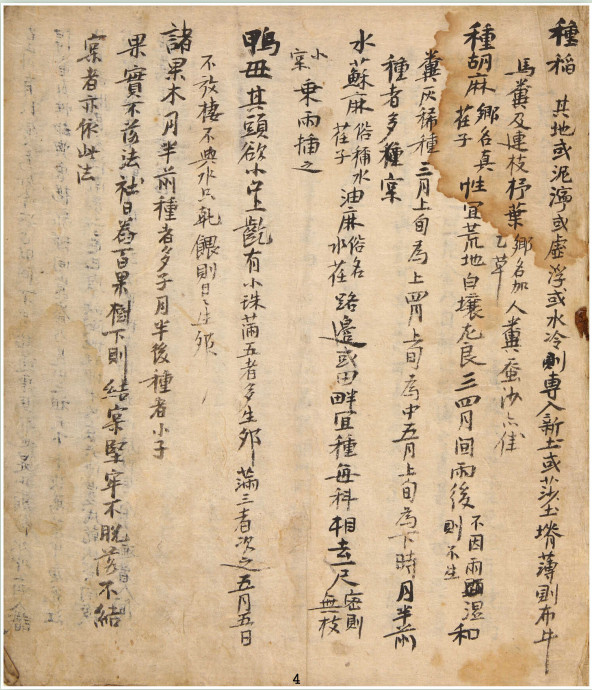 種稻 其地或泥濘或虛浮或水冷則專入新土或莎土堉薄則布牛
馬糞及連枝杼葉鄉名加乙草人糞蚕沙亦佳
種胡麻鄉名真荏子性宜荒地白壤尤良三四月間雨後不因雨湿則不生和
糞灰稀種三月上旬為上四月上旬為中五月上旬為下時月半前
種者多種實
水蘇麻俗稱水荏子油麻俗名水荏路邊或田畔宜種每科相去一尺密則無枝
小實乘雨插之
鴨母其頭欲小口上齕有小珠滿五者多生卵滿三者次之五月五日
不放棲不與水只乾餵則日々生卵
諸果木月半前種者多子月半後種者小子
果實不落法社日舂百果樹下則結實堅牢不脫落不結
實者亦依此法
4